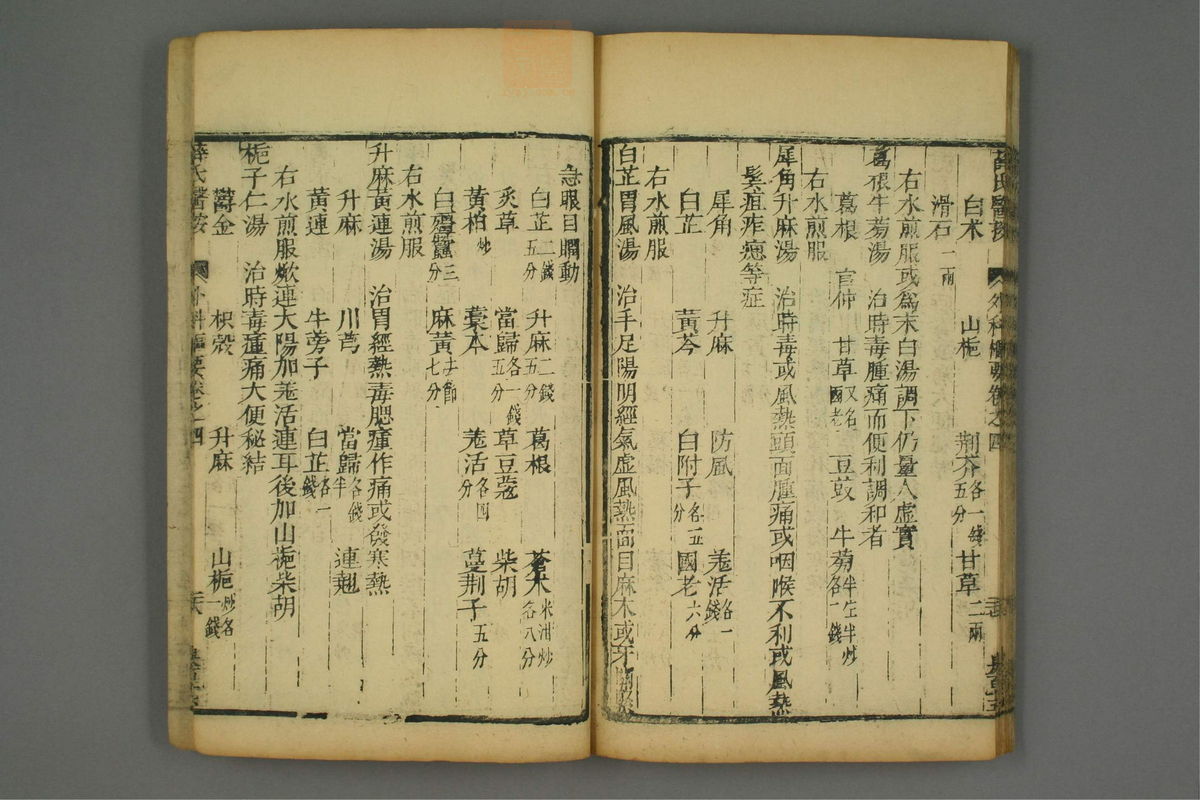 氏醫按 外科樞要卷之四
白朮 山梔 荊芥各一錢五分 甘草二兩
滑石一兩
右水煎服或爲末白湯調下仍量人虛實
葛根牛蒡湯 治時毒腫痛而便利調和者
葛根 官仲 甘草又名國老 豆豉 牛蒡半生半炒各一錢
右水煎服
犀角升麻湯 治時毒或風熱頭面腫痛或咽喉不利或風熱
鬢疽痄腮等症
犀角 升麻 防風 羌活各一錢
白芷 黃芩 白附子各五分 國老六分
右水煎服
白芷胃風湯 治手足陽明經氣虛風熱面目麻木或牙
急眼目瞤動
白芷二錢五分 升麻二錢五分 葛根 蒼朮米泔炒各八分
炙草 當歸各一錢五分 草豆蔻 柴胡
黃柏炒 藁本 羌活各四分 蔓荊子五分
白殭蠶三分 麻黃去節七分
右水煎服
升麻黃連湯 治胃經熱毒腮腫作痛或發寒熱
升麻 川芎 當歸各錢半 連翹
黃連 牛蒡子 白芷各一錢
右水煎服燉連大陽加羌活連耳後加山梔柴胡
梔子仁湯 治時毒腫痛大便秘結
鬱金 枳殼 升麻 山梔炒各一錢
薛氏醫按 外科樞要卷之四